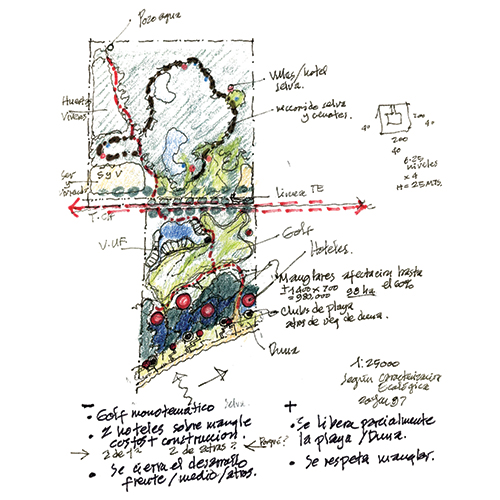 Pozo agua
Villas/hotel
selva.
Huertos
Viveros
recorrido selva
y cenotes.
200
40
200
40
40
6.25
niveles
x 4
H = 25 MTS.
Ser
y
S y V
Linea TE
T-CF
V-UF
Golf
Hoteles.
Manglares afectacion hasta
±1400 x 700 el 60%
= 980,000 98 ha
Clubs de playa
atras de veg de duna.
Duna
1:25000
Según Caracterización
Ecológica
- Golf monotemático selva.
• 2 hoteles sobre mangle
costo + construccion.
→ 2 de 1ª 2 de atras? ←
• Se cierra el desarrollo
frente/medio/atras.
+
• Se libera parcialmente
la playa/Duna.
• Se respeta manglar.